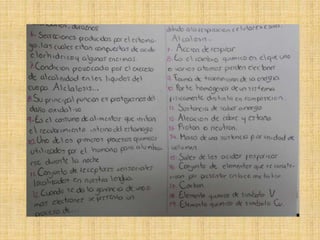 6.- Secreciones producidas por el estoma-
go, las cuales estan compuestas de acido
clorhidrico y algunas enzimas.
7.- Condicion provocada por el exceso
de alcalinidad en los liquidos del
cuerpo. Alclalosis...
8.- Su principal funcion es protegernos del
daño oxidativo
9.- Es el consumo de alimentos que irritan
el recubrimiento interno del estomago
10. Uno de los primeros procesos quimicos
utilizados por el humano para alumbra-
rse durante la noche
11. Conjunto de receptores sensoriales
localizados en nuestra lengua.
12. Cuando se da la aparicion de uno o
mas electrones se presenta un
proceso de
debido a la respiracion celular
Alcalosis...
7.- Accion de respirar
8.- Es el cambio quimico en el que uno
o varios atomos pierden electrones
9. Forma de transmision de la energia
10. Parte homogenea de un sistema
fisicamente distinto en composicion.
11. Sustancia de sabor amargo
12. Aleacion de cobre y estaño
13. Proton o neutron.
14. Masa de una sustancia por unidad de
volumen
15. Sabor de los acidos
16. Conjunto de elementos que se caracte-
rizan por presentar enlace metalico
17. Carbon
18. Elemento quimico de simbolo V
19. Elemento quimico de simbolo Cu.